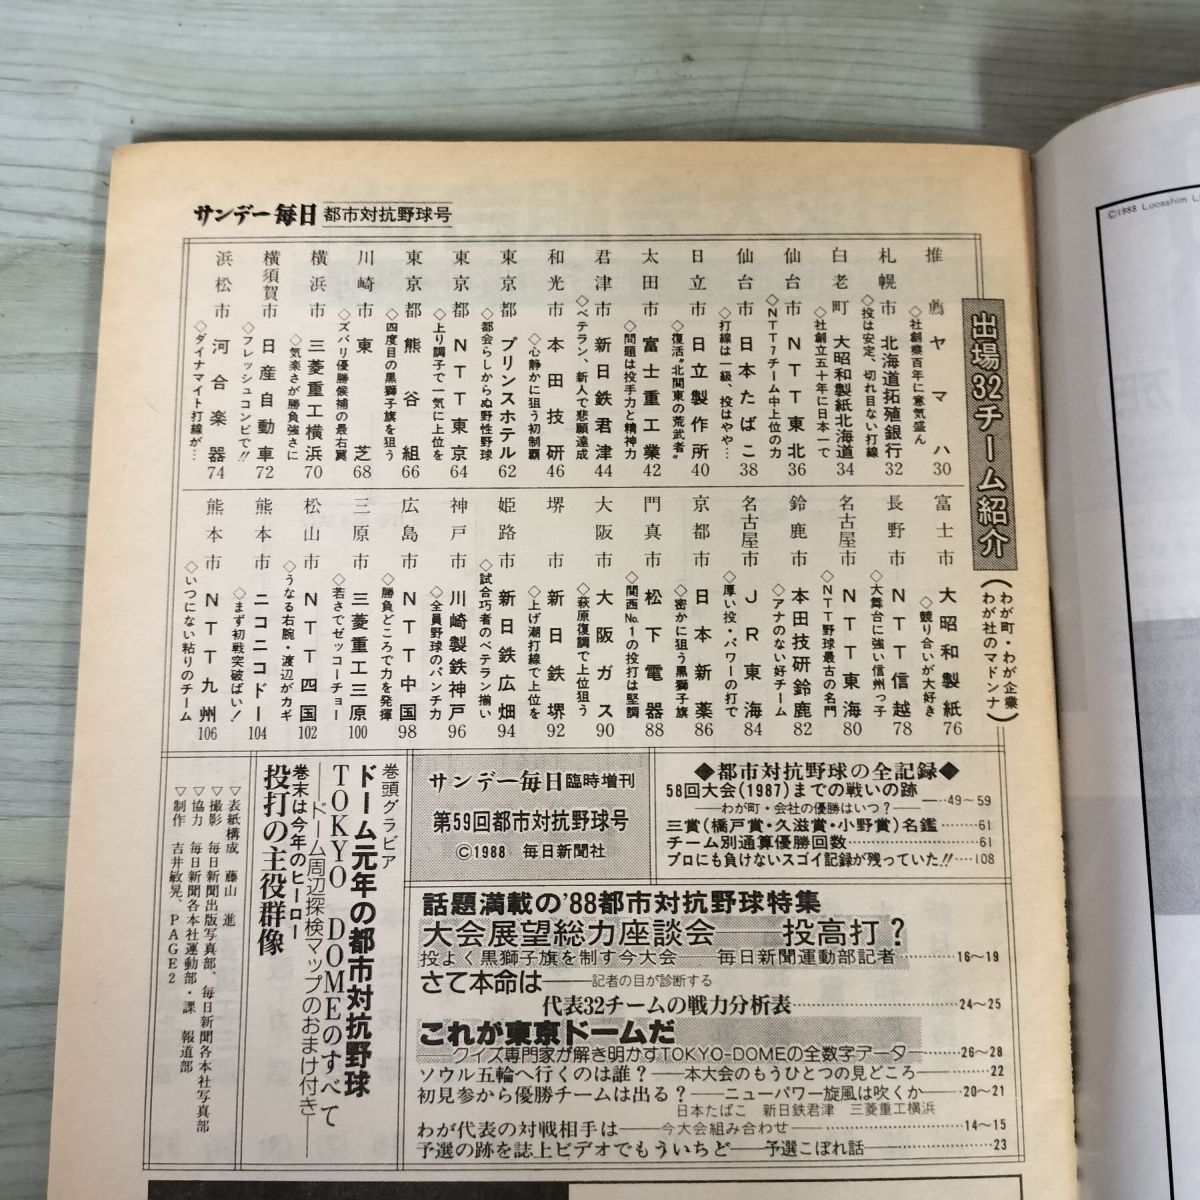 サンデー毎日 都市対抗野球号
出場32チーム紹介
(わが町・わが企業
わが社のマドンナ)
推薦 ヤマハ 30
◇社創業百年に意気盛ん
札幌市 北海道拓殖銀行 32
◇投は安定、切れ目ない打線
白老町 大昭和製紙北海道 34
◇社創立五十年に日本一で
仙台市 NTT東北 36
◇NTT7チーム中上位の力
仙台市 日本たばこ 38
◇打線は一級、投はやや…
日立市 日立製作所 40
◇復活〝北関東の荒武者〟
太田市 富士重工業 42
◇問題は投手力と精神力
君津市 新日鉄君津 44
◇ベテラン、新人で悲願達成
和光市 本田技研 46
◇心静かに狙う初制覇
東京都 プリンスホテル 62
◇都会らしからぬ野性野球
東京都 NTT東京 64
◇上り調子で一気に上位を
東京都 熊谷組 66
◇四度目の黒獅子旗を狙う
川崎市 東芝 68
◇ズバリ優勝候補の最右翼
横浜市 三菱重工横浜 70
◇気楽さが勝負強さに
横須賀市 日産自動車 72
◇フレッシュコンビで!!
浜松市 河合楽器 74
◇ダイナマイト打線が…
富士市 大昭和製紙 76
◇競り合いが大好き
長野市 NTT信越 78
◇大舞台に強い信州っ子
名古屋市 NTT東海 80
◇NTT野球最古の名門
鈴鹿市 本田技研鈴鹿 82
◇アナのない好チーム
名古屋市 JR東海 84
◇厚い投・パワーの打で
京都市 日本新薬 86
◇密かに狙う黒獅子旗
門真市 松下電器 88
◇関西No.1の投打は堅調
大阪市 大阪ガス 90
◇萩原復調で上位狙う
堺市 新日鉄堺 92
◇上げ潮打線で上位を
姫路市 新日鉄広畑 94
◇試合巧者のベテラン揃い
神戸市 川崎製鉄神戸 96
◇全員野球のパンチ力
広島市 NTT中国 98
◇勝負どころで力を発揮
三原市 三菱重工三原 100
◇若さでゼッコーチョー
松山市 NTT四国 102
◇うなる右腕・渡辺がカギ
熊本市 ニコニコドー 104
◇まず初戦突破ばい!
熊本市 NTT九州 106
◇いつにない粘りのチーム
◆都市対抗野球の全記録◆
58回大会(1987)までの戦いの跡
―わが町・会社の優勝はいつ?― …49~59
三賞(橋戸賞・久滋賞・小野賞)名鑑……61
チーム別通算優勝回数……61
プロにも負けないスゴイ記録が残っていた!!…108
サンデー毎日 臨時増刊
第59回都市対抗野球号
©1988 毎日新聞社
話題満載の'88都市対抗野球特集
大会展望総力座談会――投高打?
投よく黒獅子旗を制す今大会――毎日新聞運動部記者……16~19
さて本命は――記者の目が診断する
代表32チームの戦力分析表……24~25
これが東京ドームだ
――クイズ専門家が解き明かすTOKYO-DOMEの全数字データー……26~28
ソウル五輪へ行くのは誰?――本大会のもうひとつの見どころ……22
初見参から優勝チームは出る?――ニューパワー旋風は吹くか……20~21
日本たばこ 新日鉄君津 三菱重工横浜
わが代表の対戦相手は――今大会組み合わせ……14~15
予選の跡を誌上ビデオでもういちど――予選こぼれ話……23
巻頭グラビア
ドーム元年の都市対抗野球
TOKYO DOMEのすべて
――ドーム周辺探検マップのおまけ付き――
巻末は今年のヒーロー
投打の主役群像
▽表紙構成 藤山 進
▽撮影 毎日新聞出版写真部、毎日新聞各本社写真部
▽協力 毎日新聞各本社運動部・課 報道部
▽制作 吉井敏晃、PAGE2
©1988 Lucasfilm L